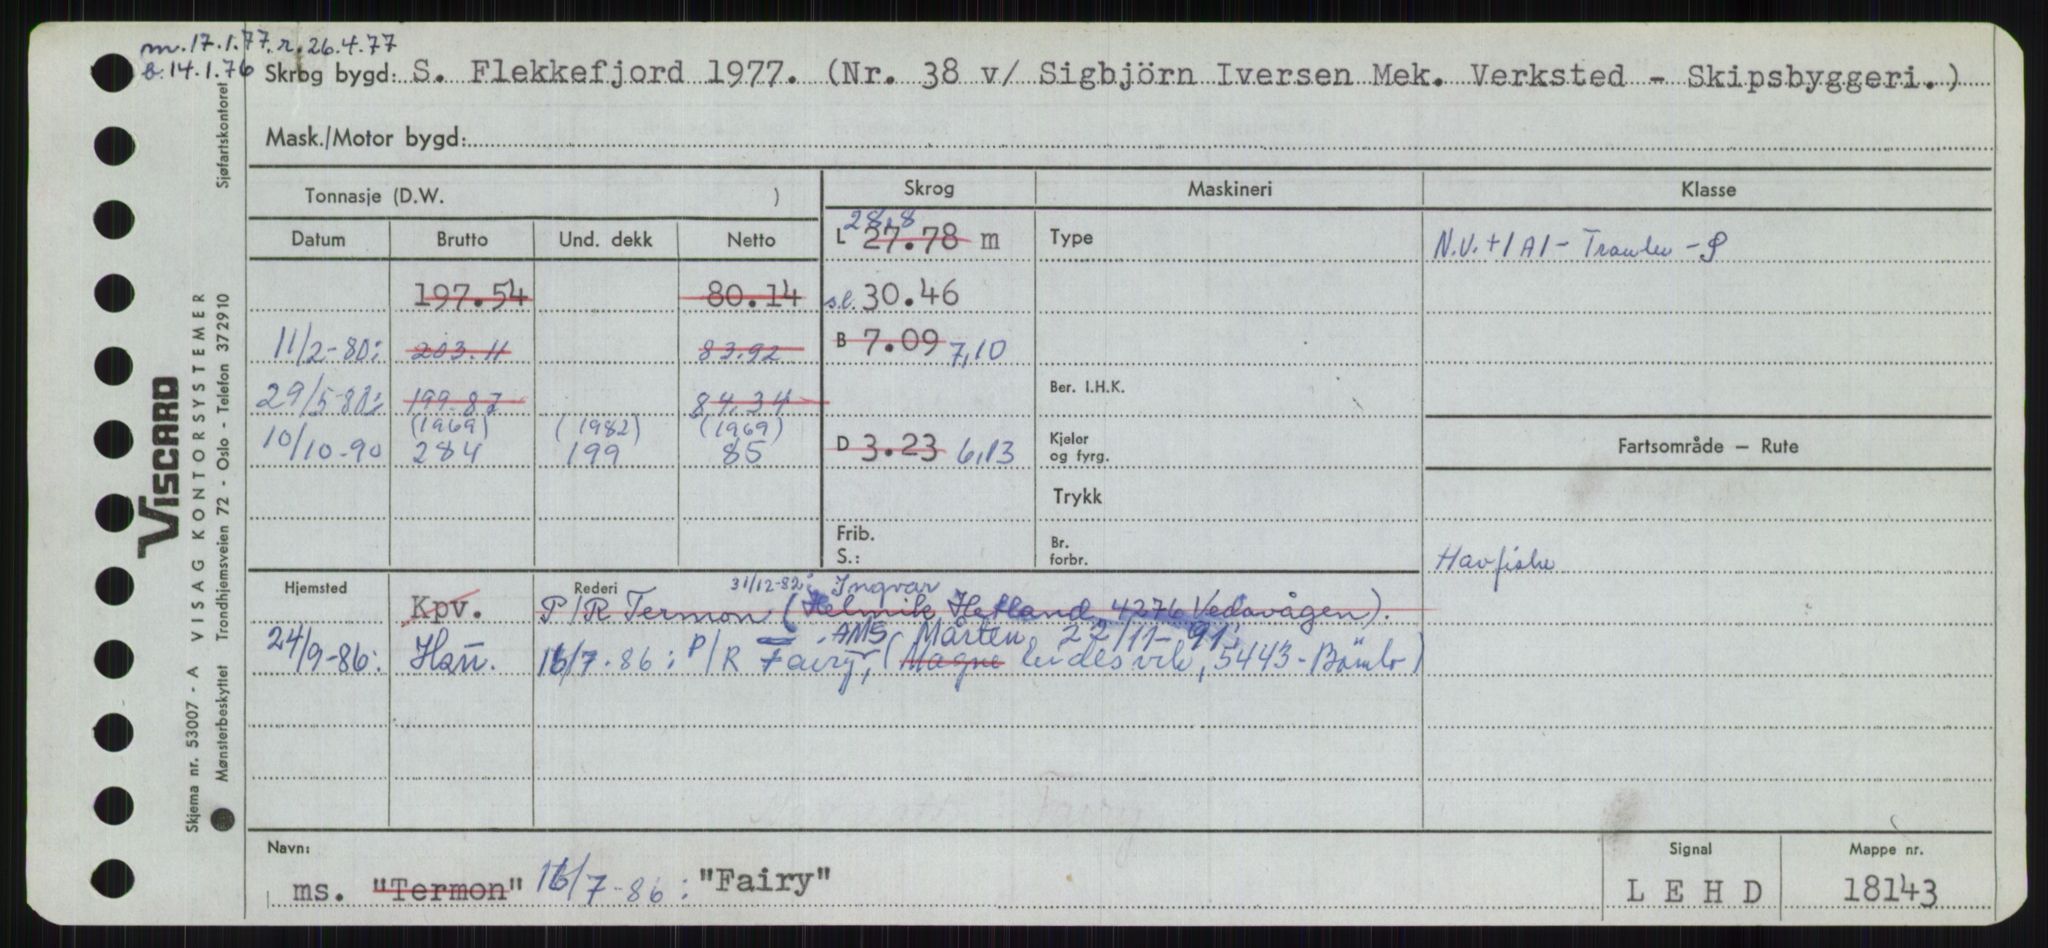 m. 17.1.77. r. 26.4.77
b. 14.1.76
Skrog bygd: S. Flekkefjord 1977. (Nr. 38 v/ Sigbjörn Iversen Mek. Verksted - Skipsbyggeri.)
Mask./Motor bygd:
Tonnasje (D.W. )
Skrog Maskineri Klasse
Datum Brutto Und. dekk Netto
28,8
L 27.78 m Type
N.V. +1A1 - Trawler - S
197.54 80.14 s.l. 30.46
11/2-80: 203.11 83.92 B 7.09 7,10
29/5-80: 199.87 84.34 Ber. I.H.K.
(1969) (1982) (1969)
10/10-90 284 199 85 D 3.23 6,13 Kjeler og fyrg.
Fartsområde — Rute
Trykk
Frib.
S.: Br. forbr.
Havfiske
Hjemsted Rederi 31/12-82: Ingvar
Kpv. P/R Termon (Helmik Hetland, 4276 Vedavågen).
AMS Mårten 22/11-91
24/9-86: Hau. 16/7-86: P/R Fairy, (Magne Eidesvik, 5443-Bömlo)
Navn: Signal Mappe nr.
ms. "Termon" 16/7-86: "Fairy" LEHD 18143
VISCARD
VISAG KONTORSYSTEMER
Skjema nr. 53007 - A
Mønsterbeskyttet Trondhjemsveien 72 - Oslo - Telefon 372910 Sjøfartskontoret